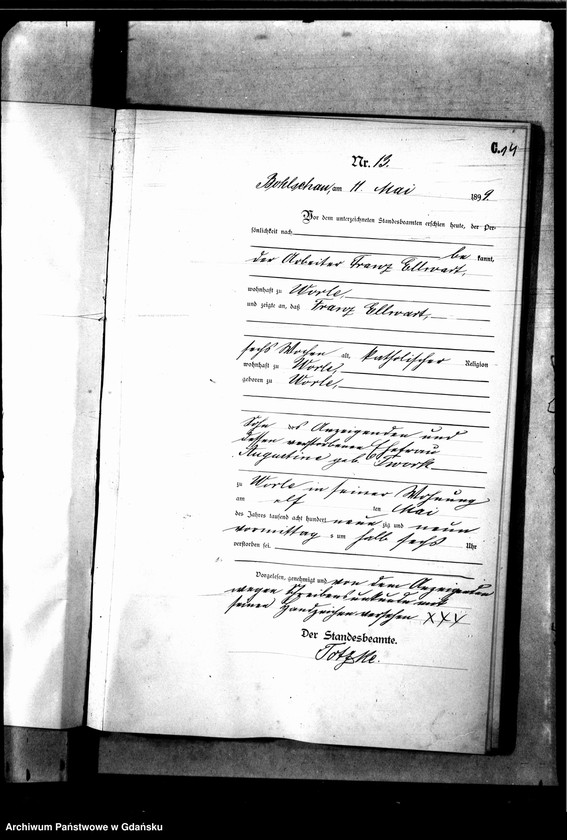 C.14
Nr. 13.
Bohlschau, am 11. Mai 1899.
Vor dem unterzeichneten Standesbeamten erschien heute, der Per-
sönlichkeit nach
be kannt,
der Arbeiter Franz Ellwart,
wohnhaft zu Worle,
und zeigte an, daß Franz Ellwart,
sechs Wochen alt, katholischer Religion
wohnhaft zu Worle,
geboren zu Worle,
Sohn des Anzeigenden und
dessen verstorbenen Ehefrau
Augustine geb.
zu Worle in seiner Wohnung
am elf ten Mai
des Jahres tausend acht hundert neun zig und neun
vormittag s um halb sechs Uhr
verstorben sei.
Vorgelesen, genehmigt und von dem Anzeigenden
wegen Schreibensunkunde mit
seinen Handzeichen versehen XXX
Der Standesbeamte.
Totzke.
Archiwum Państwowe w Gdańsku